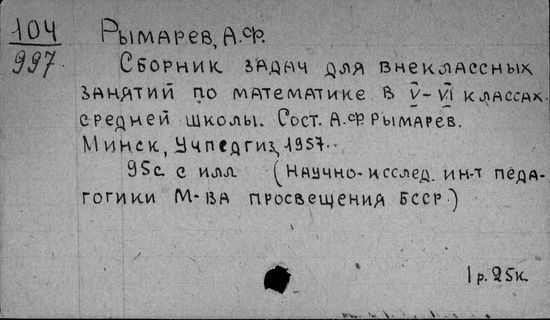 104
997.
Рымарев, А.Ф.
Сборник задач для внеклассных
занятий по математике в V-VI классах
средней школы. Сост. А.Ф Рымарев.
Минск, Учпедгиз, 1957.
95с. с илл (Научно-исслед. ин-т педа-
гогики М-ва просвещения БССР.)
1р. 25к.